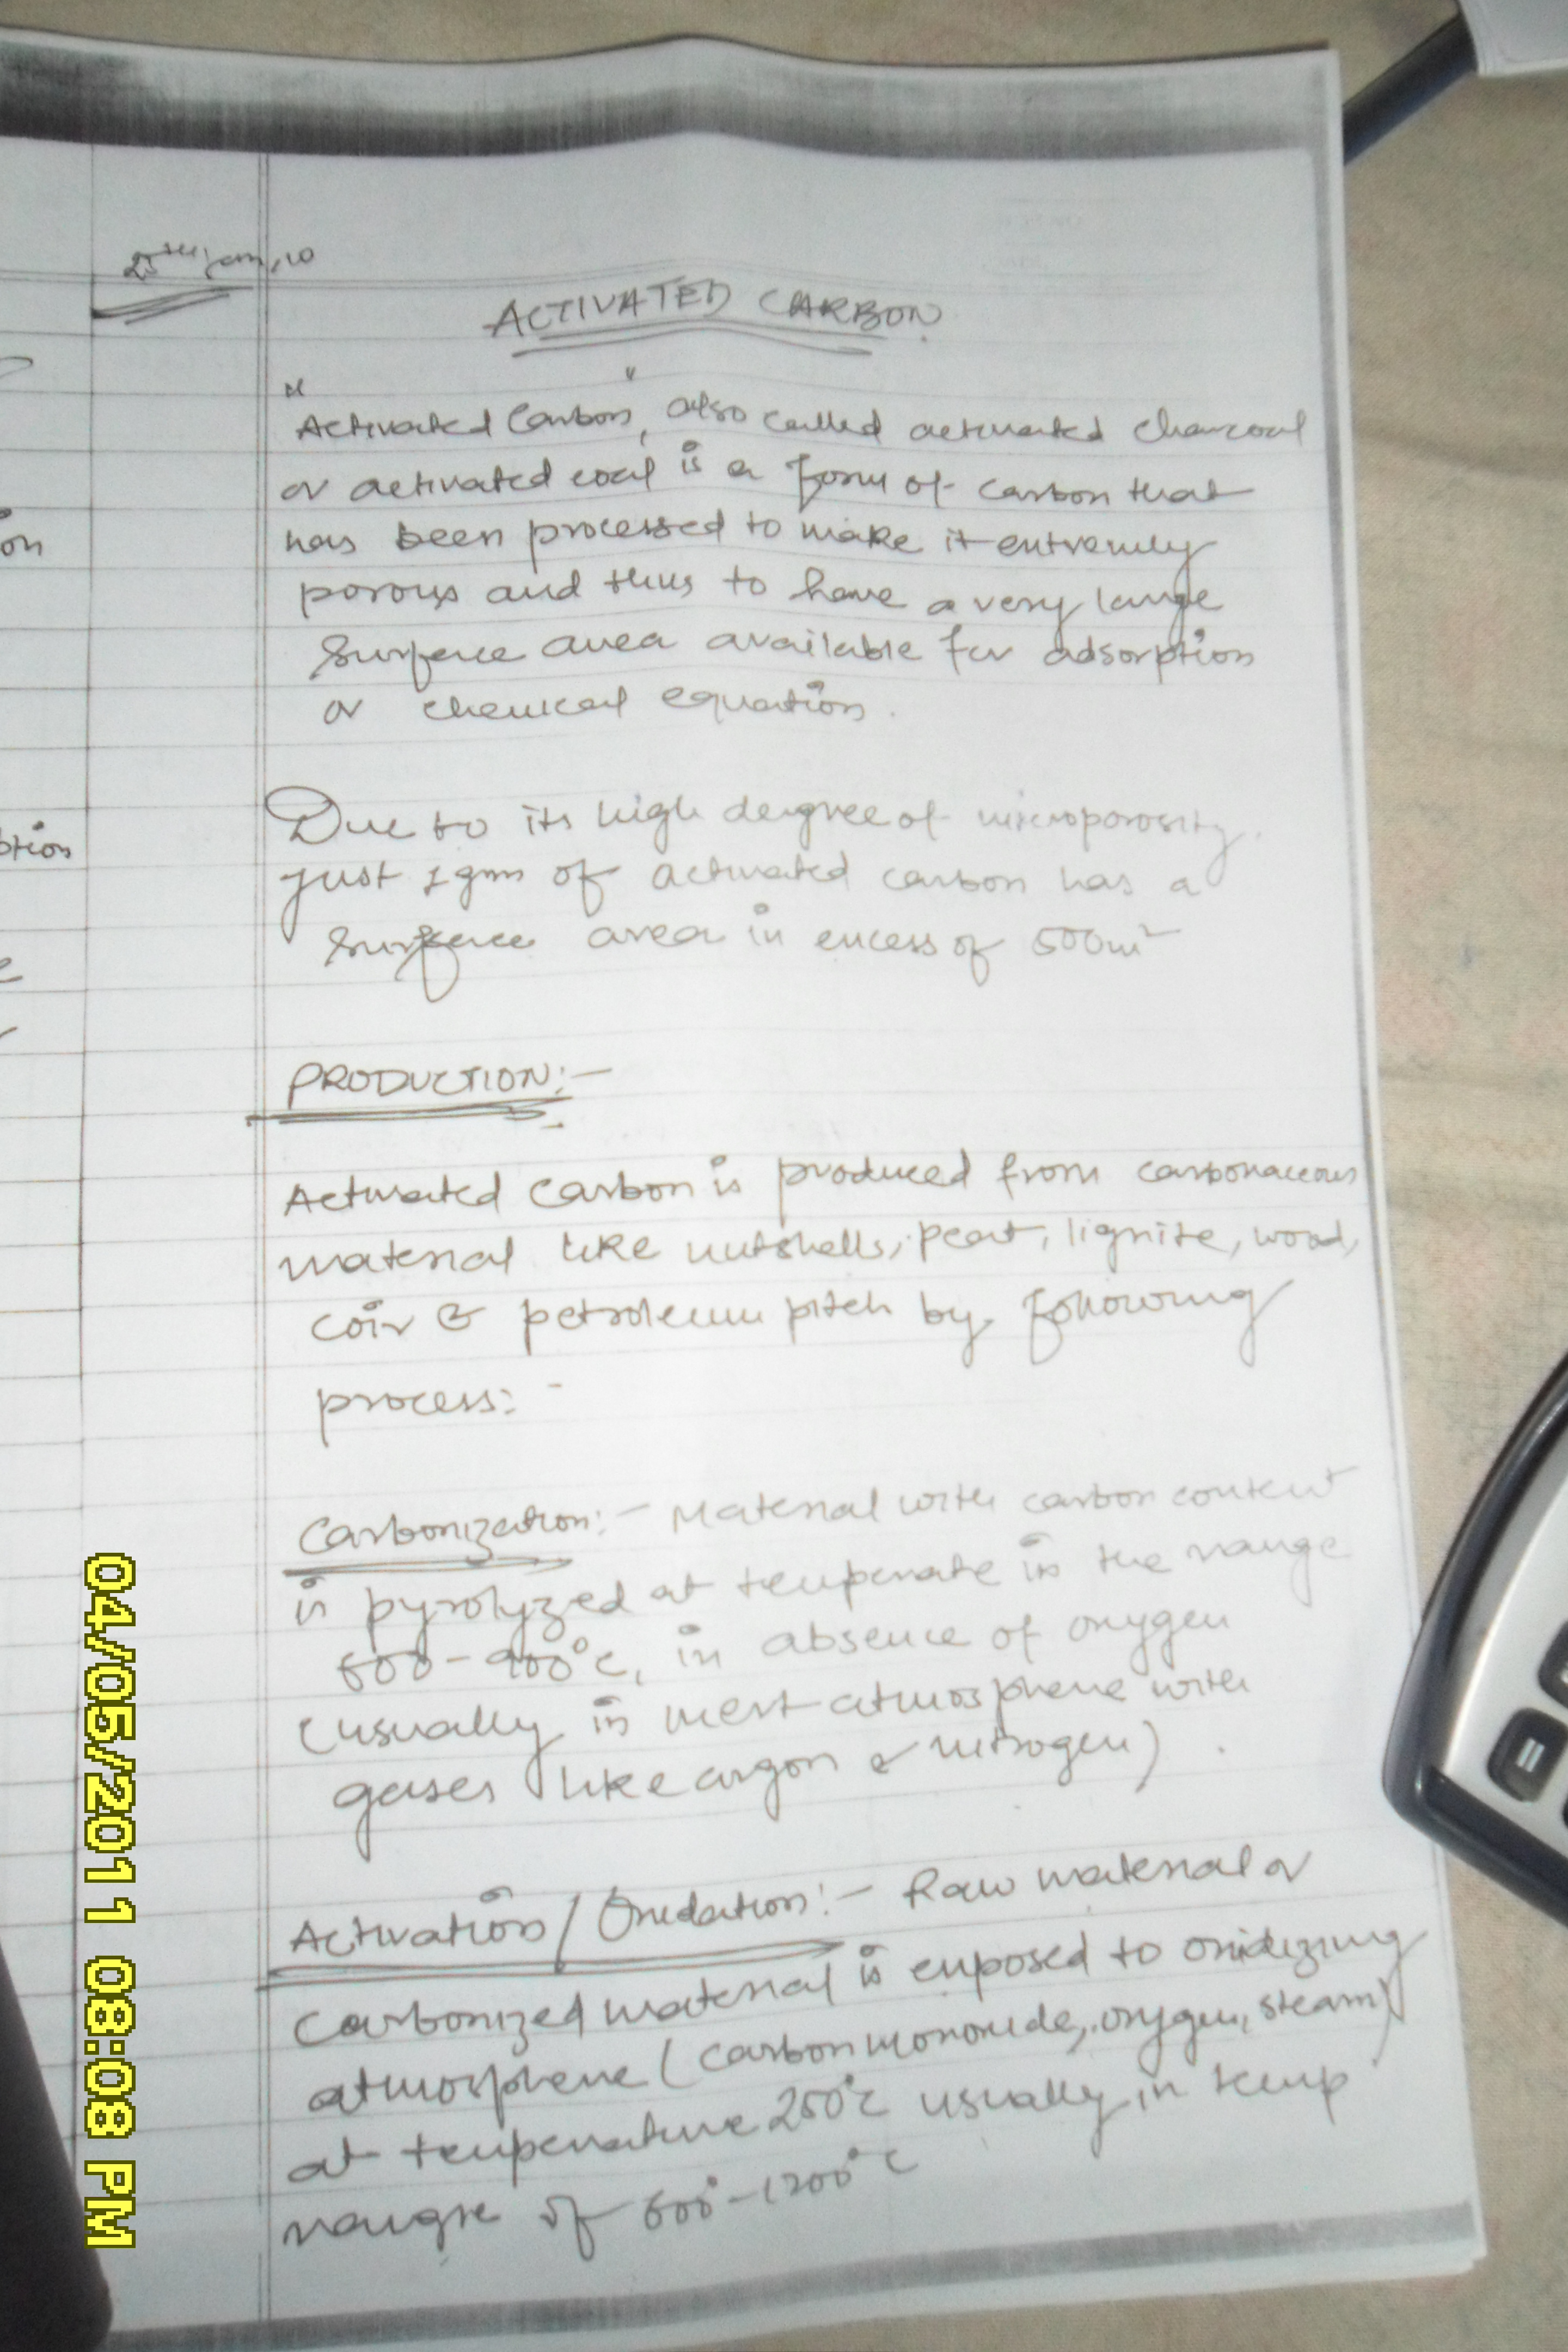 25th Jan, 10
ACTIVATED CARBON
"Activated Carbon", also called activated charcoal
or activated coal is a form of carbon that
has been processed to make it extremely
porous and thus to have a very large
surface area available for adsorption
or chemical equation.
Due to its high degree of microporosity.
just 1 gm of activated carbon has a
surface area in excess of 500m²
PRODUCTION:-
Activated Carbon is produced from carbonaceous
material like nutshells, peat, lignite, wood,
coir & petroleum pitch by following
process:-
Carbonization:- Material with carbon content
is pyrolyzed at temperate in the range
600-900°C, in absence of oxygen
(usually in inert atmosphere with
gases like argon or nitrogen).
Activation/Oxidation:- Raw material or
Carbonized material is exposed to oxidizing
atmosphere (carbon monoxide, oxygen, steam)
at temperature 250°C usually in temp
range of 600°-1200°C
on
ption
=
04/05/2011 08:08 PM